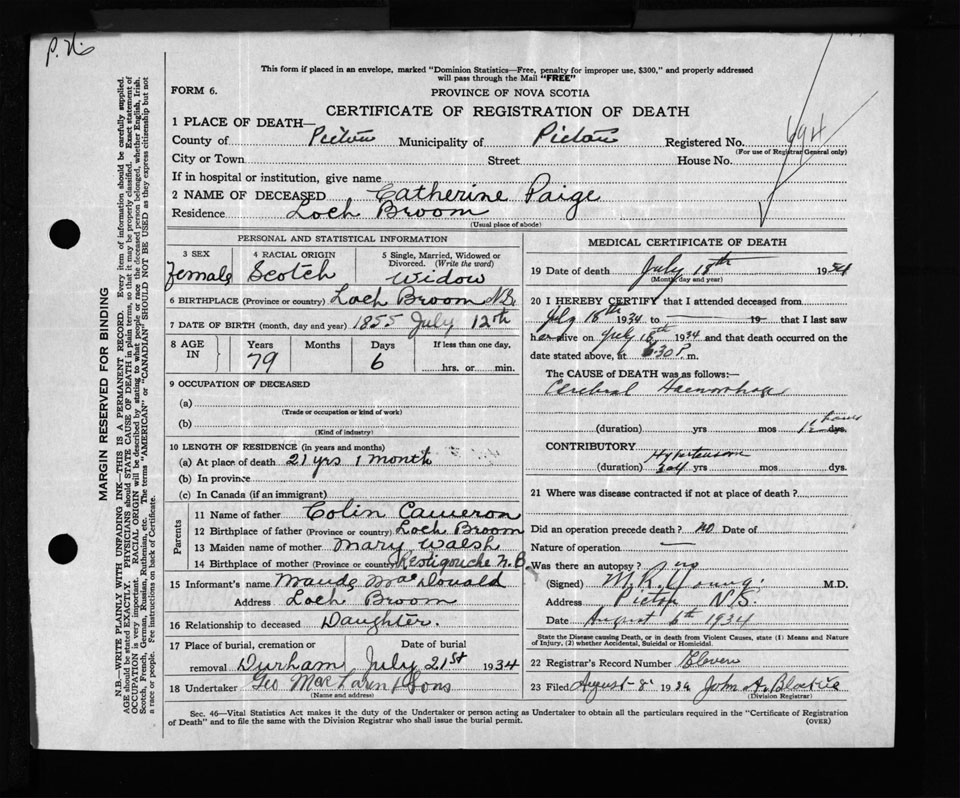 P. No.
This form if placed in an envelope, marked "Dominion Statistics—Free, penalty for improper use, $300," and properly addressed
will pass through the Mail "FREE"
FORM 6. PROVINCE OF NOVA SCOTIA
CERTIFICATE OF REGISTRATION OF DEATH
1 PLACE OF DEATH—
County of Pictou Municipality of Pictou Registered No. 694
(For use of Registrar General only)
City or Town Street House No.
If in hospital or institution, give name
2 NAME OF DECEASED Catherine Paige
Residence Loch Broom
(Usual place of abode)
PERSONAL AND STATISTICAL INFORMATION
3 SEX 4 RACIAL ORIGIN 5 Single, Married, Widowed or
Divorced. (Write the word)
Female Scotch Widow
6 BIRTHPLACE (Province or country) Loch Broom N.S.
7 DATE OF BIRTH (month, day and year) 1855 July 12th
8 AGE IN Years Months Days If less than one day,
79 6 hrs. or min.
9 OCCUPATION OF DECEASED
(a)
(Trade or occupation or kind of work)
(b)
(Kind of industry)
10 LENGTH OF RESIDENCE (in years and months)
(a) At place of death 21 yrs 1 month
(b) In province
(c) In Canada (if an immigrant)
Parents
11 Name of father Colin Cameron
12 Birthplace of father (Province or country) Loch Broom
13 Maiden name of mother Mary Walsh
14 Birthplace of mother (Province or country) Restigouche N.B.
15 Informant's name Maude MacDonald
Address Loch Broom
16 Relationship to deceased Daughter.
17 Place of burial, cremation or Date of burial
removal Durham July 21st 1934
18 Undertaker Geo MacLaren & Sons
(Name and address)
MEDICAL CERTIFICATE OF DEATH
19 Date of death July 18th 1934
(Month, day and year)
20 I HEREBY CERTIFY that I attended deceased from
July 18th 1934 to 19 that I last saw
her alive on July 18th 1934 and that death occurred on the
date stated above, at 6:30 P. m.
The CAUSE of DEATH was as follows:—
Cerebral Haemorrhage
(duration) yrs mos 12 hours dys.
CONTRIBUTORY Hypertension
(duration) 3 or 4 yrs mos dys.
21 Where was disease contracted if not at place of death?
Did an operation precede death? no Date of
Nature of operation —
Was there an autopsy? no
(Signed) M.R. Young M.D.
Address Pictou N.S.
Date August 6th 1934
State the Disease causing Death, or in death from Violent Causes, state (1) Means and Nature
of Injury, (2) whether Accidental, Suicidal or Homicidal.
22 Registrar's Record Number Eleven
23 Filed August 8 1934 John A.
(Division Registrar)
Sec. 46—Vital Statistics Act makes it the duty of the Undertaker or person acting as Undertaker to obtain all the particulars required in the "Certificate of Registration
of Death" and to file the same with the Division Registrar who shall issue the burial permit. (OVER)
MARGIN RESERVED FOR BINDING
N.B.—WRITE PLAINLY WITH UNFADING INK—THIS IS A PERMANENT RECORD. Every item of information should be carefully supplied.
AGE should be stated EXACTLY. PHYSICIANS should STATE CAUSE OF DEATH in plain terms, so that it may be properly classified. Exact statement of
OCCUPATION is very important. RACIAL ORIGIN will be described by stating to what people or race the deceased person belonged, whether English, Irish,
Scotch, French, German, Russian, Ruthenian, etc. The terms "AMERICAN" or "CANADIAN" SHOULD NOT BE USED as they express citizenship but not
a race or people. See instructions on back of Certificate.